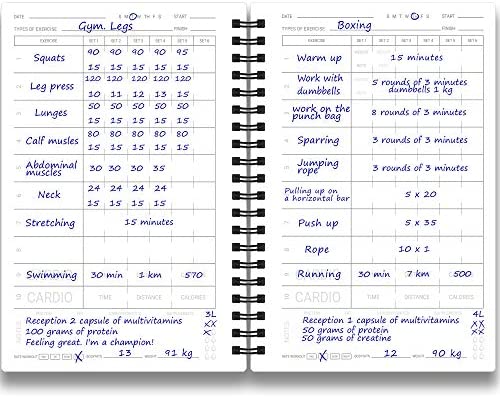 DATE S M T W T F S START
TYPES OF EXERCISE Gym. Legs FINISH
EXERCISE SET 1 SET 2 SET 3 SET 4 SET 5 SET 6
1 Squats 90 90 90 90 95
15 15 15 15 15
2 Leg press 120 120 120 120 120
10 11 12 13 15
3 Lunges 50 50 50 50 50
15 15 15 15 15
4 Calf musles 80 80 80 80 80
15 15 15 15 15
5 Abdominal muscles 30 30 30 35
6 Neck 24 24 24 24
15 15 15 15
7 Stretching 15 minutes
8
9 Swimming 30 min 1 km 570
10 CARDIO TIME DISTANCE CALORIES
NOTES
Reception 2 capsule of multivitamins 3L
100 grams of protein XX
Feeling great. I'm a champion! X
13 WEIGHT 91 kg
DATE S M T W T F S START
TYPES OF EXERCISE Boxing FINISH
EXERCISE SET 1 SET 2 SET 3 SET 4 SET 5 SET 6
1 Warm up 15 minutes
2 Work with dumbbells 5 rounds of 3 minutes
dumbbells 1 kg
3 work on the punch bag 8 rounds of 3 minutes
4 Sparring 3 rounds of 3 minutes
5 Jumping rope 3 rounds of 3 minutes
Pulling up on a horizontal bar 5 x 20
7 Push up 5 x 35
8 Rope 10 x 1
9 Running 30 min 7 km 500
10 CARDIO TIME DISTANCE CALORIES
NOTES
Reception 1 capsule of multivitamins 4L
50 grams of protein XX
50 grams of creatine XX
12 WEIGHT 90 kg